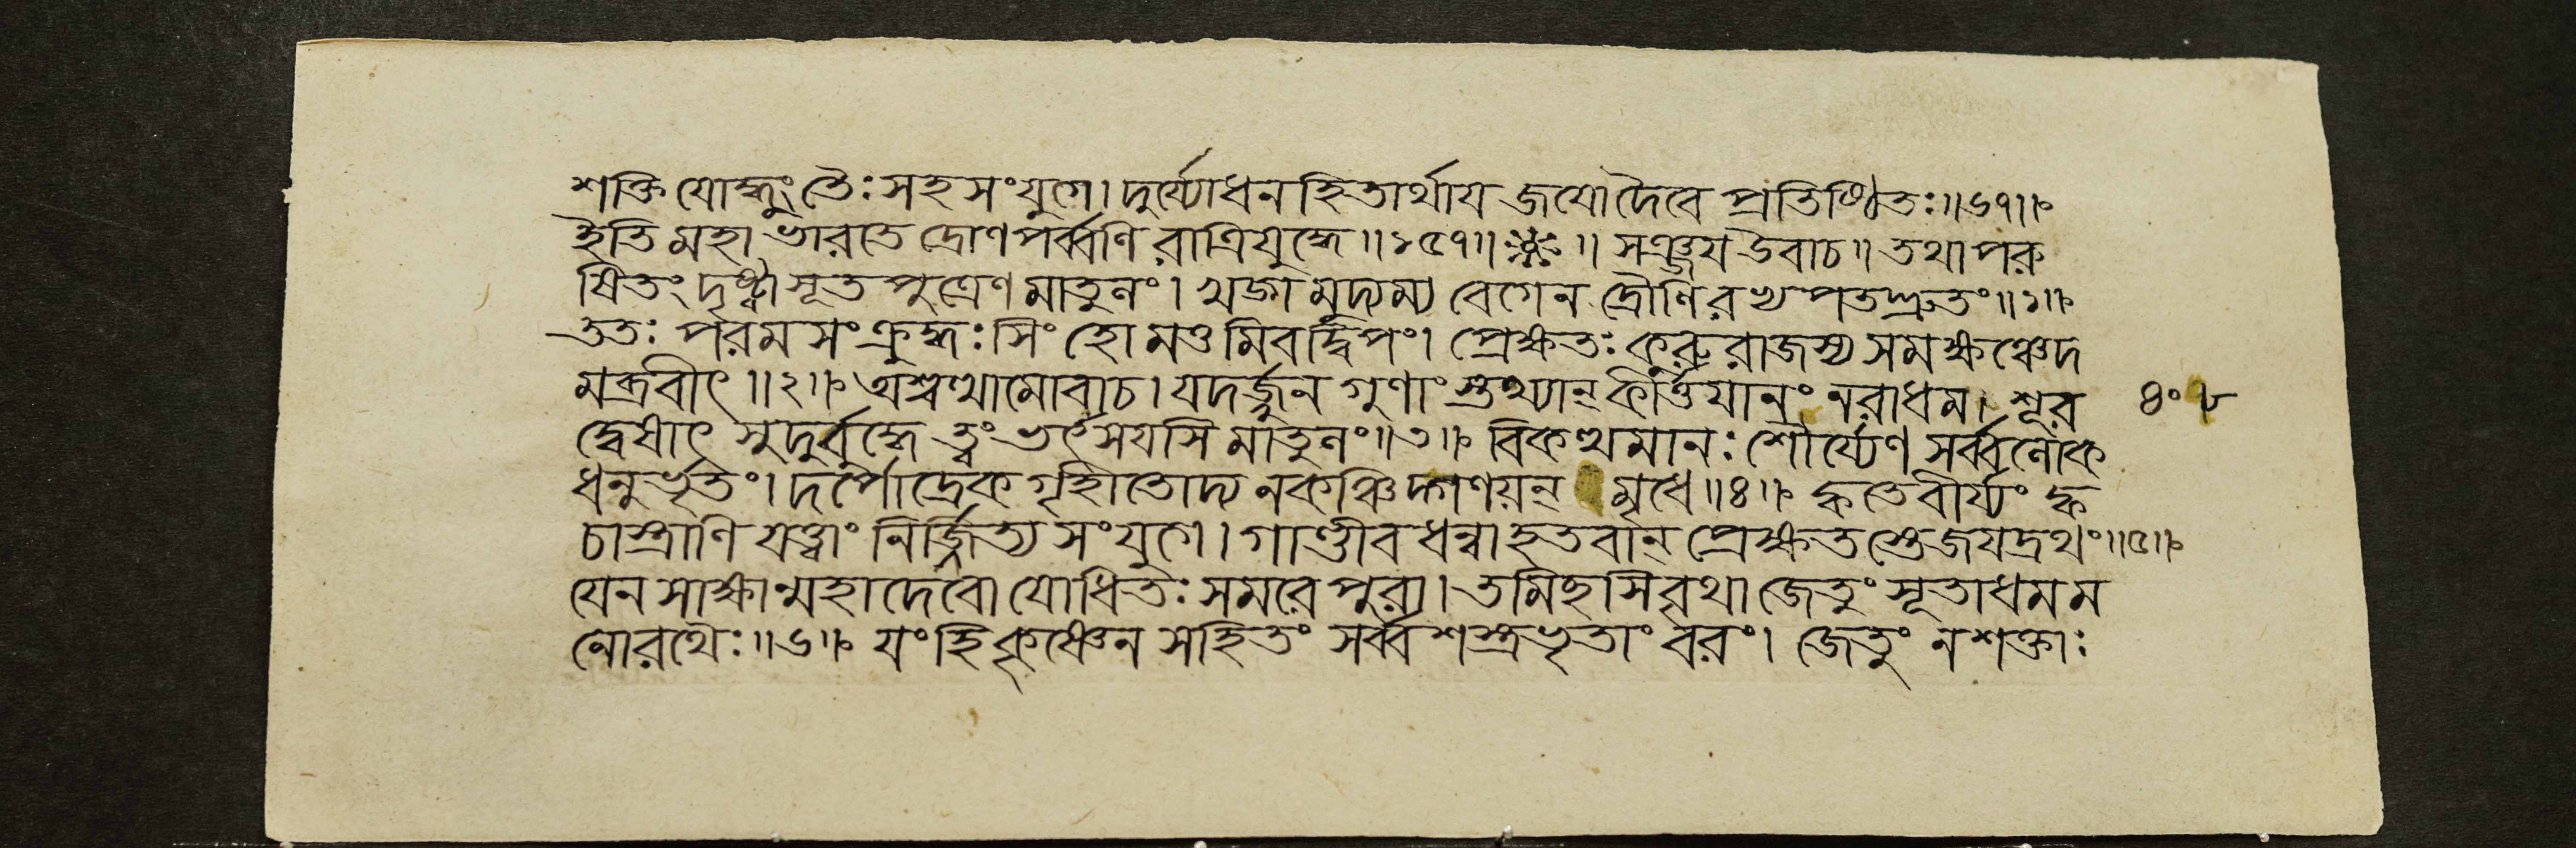 শক্তি যোদ্ধুং তৈঃ সহ সংযুগে। দুর্য্যোধন হিতার্থায জযো দৈবে প্রতিষ্ঠিতঃ॥৬৭॥
ইতি মহাভারতে দ্রোণপর্ব্বণি রাত্রিযুদ্ধে॥১৫৭॥ ॥ সঞ্জয উবাচ॥ তথা পরু
ষিতং দৃষ্ট্বা সূতপুত্রেণ মাতুলং। খড্গমুদ্যম্য বেগেন দ্রৌণিরভ্যপতদ্দ্রুতং॥১॥
ততঃ পরমসংক্রুদ্ধঃ সিংহো মত্তমিব দ্বিপং। প্রেক্ষতঃ কুরুরাজস্য সমক্ষঞ্চেদ
মব্রবীৎ॥২॥ অশ্বত্থামোবাচ। যদর্জ্জুন গুণাংস্তথ্যান্ কীর্ত্তযানং নরাধম। শূর ৪০৮
দ্বেষাৎ সুদুর্বুদ্ধে ত্বং ভর্ৎসযসি মাতুলং॥৩॥ বিকত্থমানঃ শৌর্য্যেণ সর্ব্বলোক
ধনুর্ভৃতং। দর্পোদ্রেক গৃহীতোদ্য নকঞ্চিদ্গণয়ন্ মৃধে॥৪॥ ক্ব তে বীর্য্যং ক্ব
চাস্ত্রাণি যত্ত্বাং নির্জ্জিত্য সংযুগে। গাণ্ডীবধন্বা হতবান্ প্রেক্ষতস্তে জযদ্রথং॥৫॥
যেন সাক্ষান্মহাদেবো যোধিতঃ সমরে পুরা। তমিছসি বৃথা জেতুং সূতাধম ম
নোরথৈঃ॥৬॥ যং হি কৃষ্ণেন সহিতং সর্ব্বশস্ত্রভৃতাং বরং। জেতুং ন শক্তাঃ